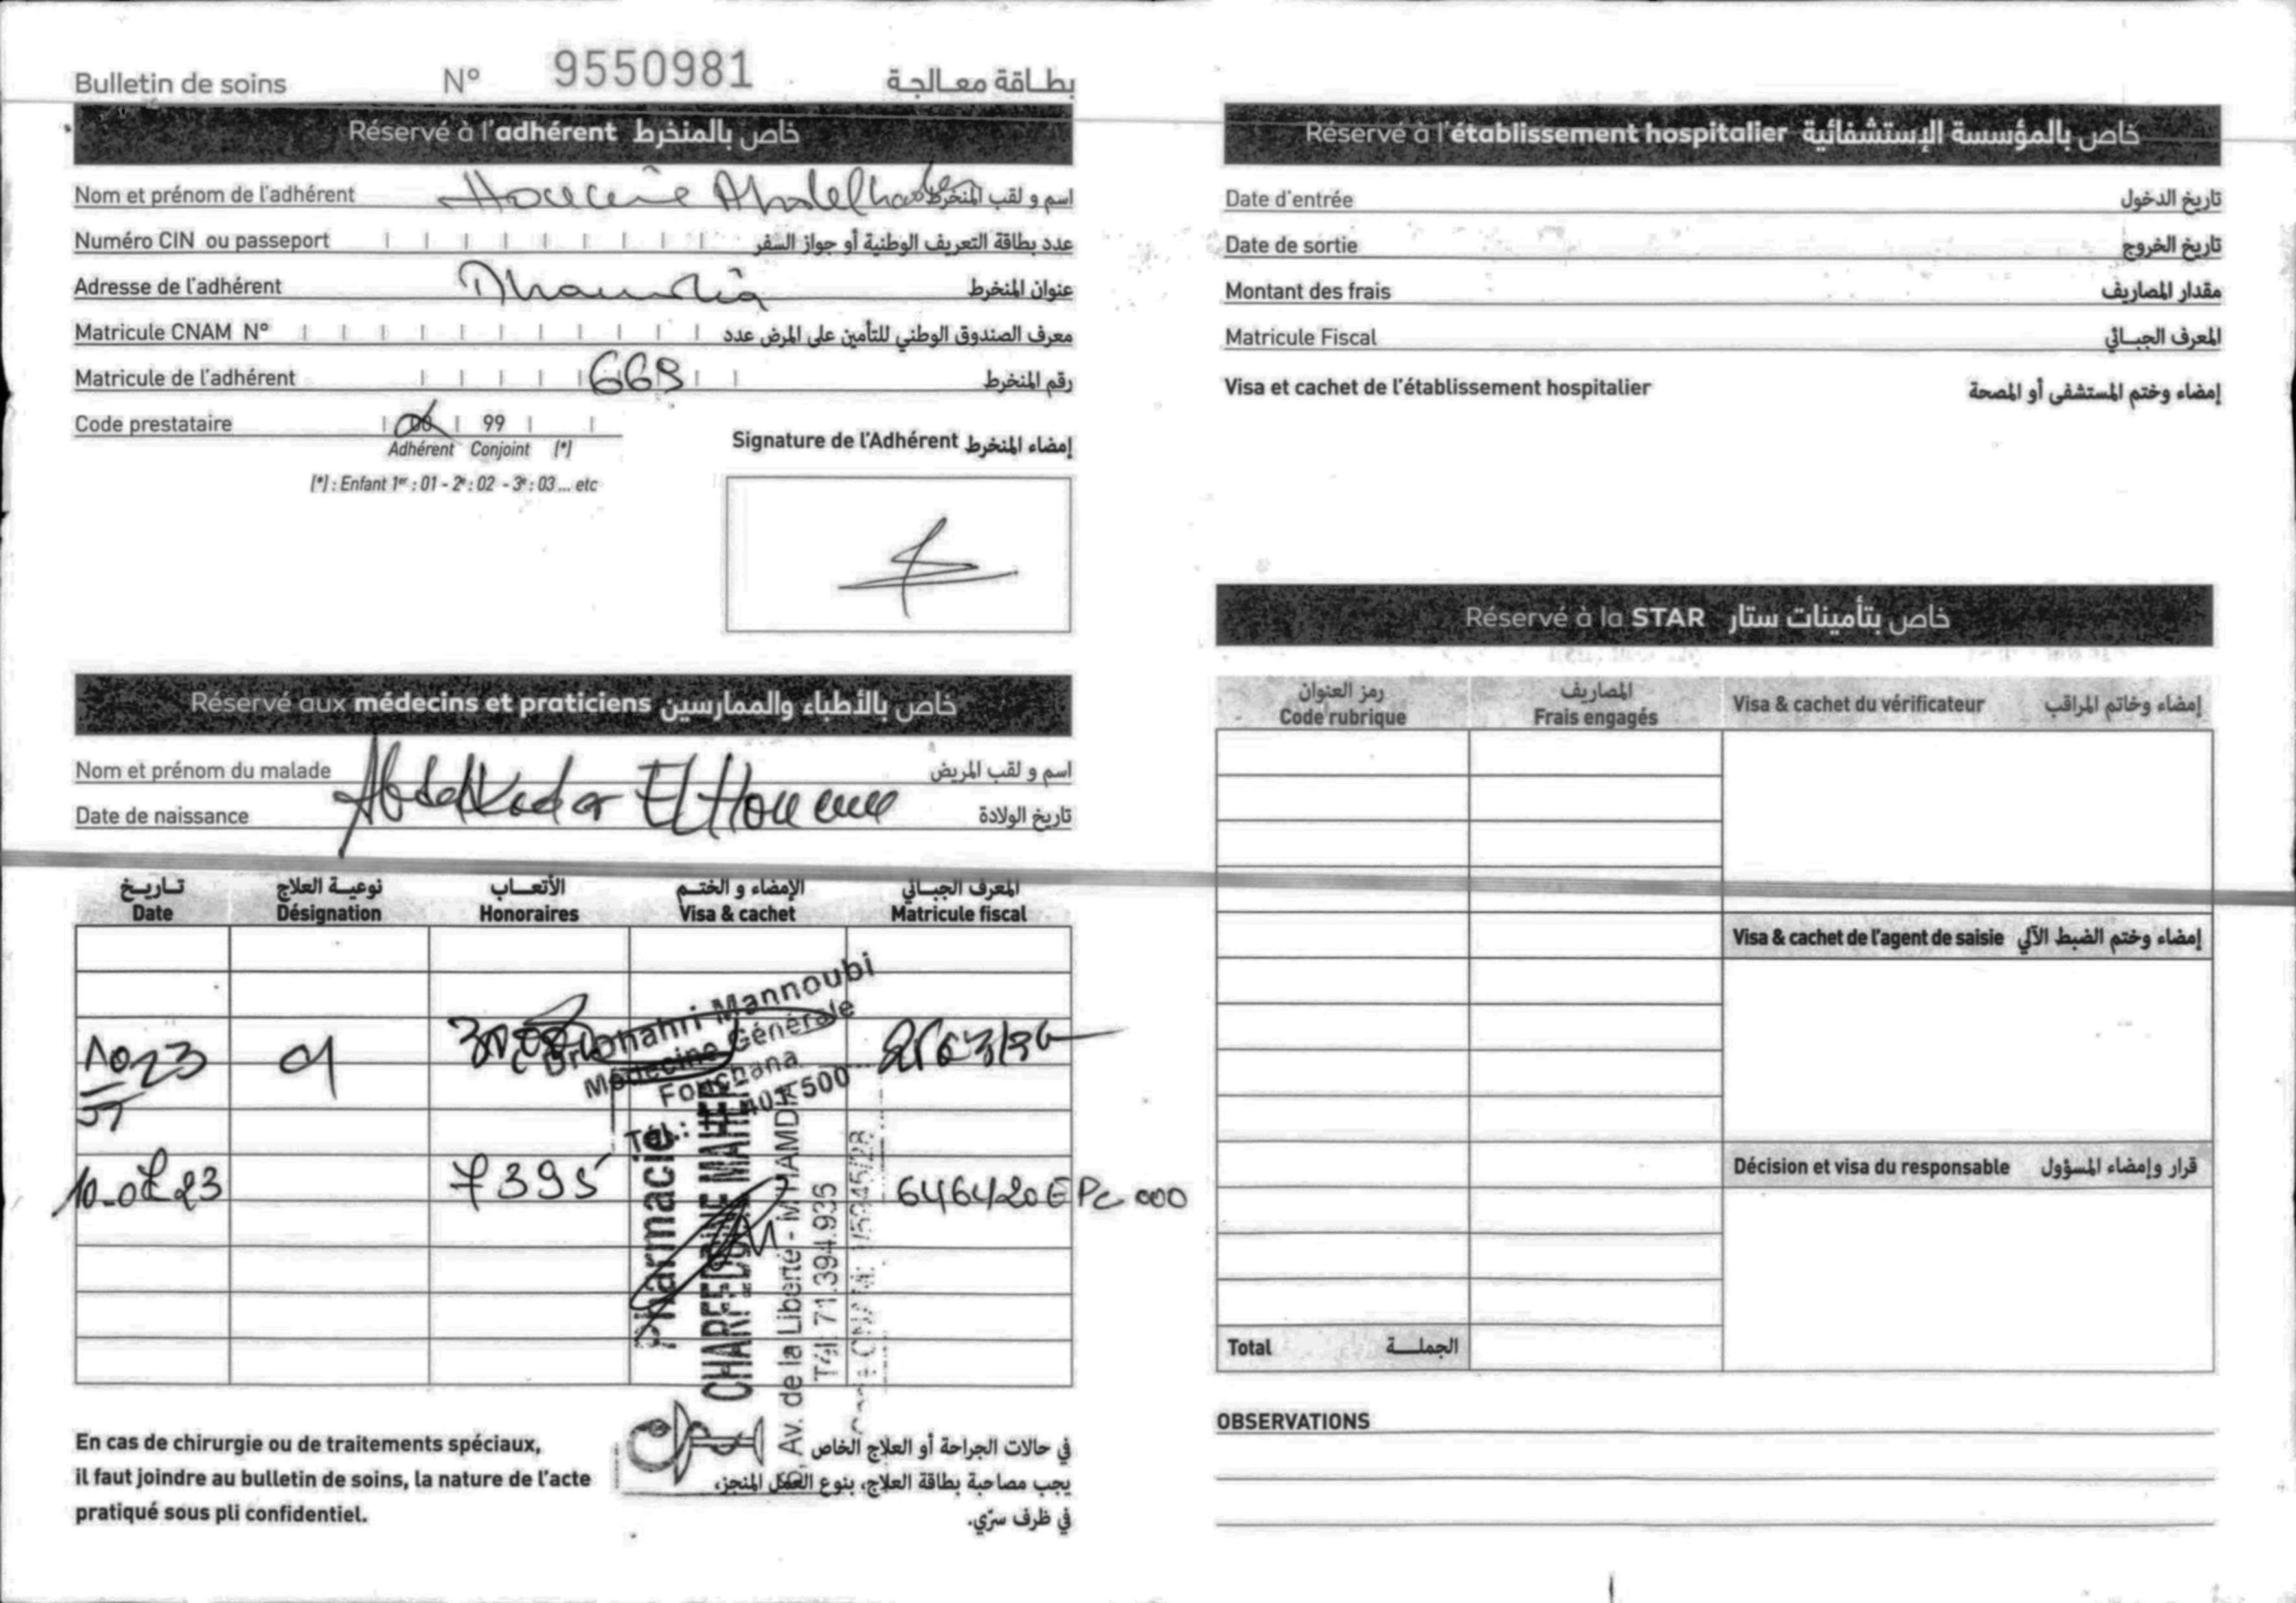 Bulletin de soins N° 9550981 بطاقة معالجة
Réservé à l'adhérent خاص بالمنخرط
Nom et prénom de l'adhérent Houcine Abdelkader اسم و لقب المنخرط
Numéro CIN ou passeport عدد بطاقة التعريف الوطنية أو جواز السفر
Adresse de l'adhérent عنوان المنخرط
Matricule CNAM N° معرف الصندوق الوطني للتأمين على المرض عدد
Matricule de l'adhérent 669 رقم المنخرط
Code prestataire 00 99
Adhérent Conjoint (*)
(*) : Enfant 1er : 01 - 2e : 02 - 3e : 03 ... etc
Signature de l'Adhérent إمضاء المنخرط
Réservé aux médecins et praticiens خاص بالأطباء والممارسين
Nom et prénom du malade Abdelkader El Houcine اسم و لقب المريض
Date de naissance تاريخ الولادة
تـاريـخ نوعيـة العلاج الأتعـاب الإمضاء و الختـم المعرف الجبـائي
Date Désignation Honoraires Visa & cachet Matricule fiscal
Dr Dhahri Mannoubi
Médecine Générale
Fouchana
Tél.: 401 500
1023
10-07 23 7395 646420 E Pc 000
Pharmacie
CHARFEDDINE MAHER
Av. de la Liberté - M'HAMDIA
Tél: 71.394.935
En cas de chirurgie ou de traitements spéciaux,
il faut joindre au bulletin de soins, la nature de l'acte
pratiqué sous pli confidentiel.
في حالات الجراحة أو العلاج الخاص
يجب مصاحبة بطاقة العلاج، بنوع العمل المنجز،
في ظرف سرّي.
Réservé à l'établissement hospitalier خاص بالمؤسسة الإستشفائية
Date d'entrée تاريخ الدخول
Date de sortie تاريخ الخروج
Montant des frais مقدار المصاريف
Matricule Fiscal المعرف الجبـائي
Visa et cachet de l'établissement hospitalier إمضاء وختم المستشفى أو المصحة
Réservé à la STAR خاص بتأمينات ستار
رمز العنوان المصاريف
Code rubrique Frais engagés Visa & cachet du vérificateur إمضاء وخاتم المراقب
Visa & cachet de l'agent de saisie إمضاء وختم الضبط الآلي
Décision et visa du responsable قرار وإمضاء المسؤول
Total الجملـــة
OBSERVATIONS